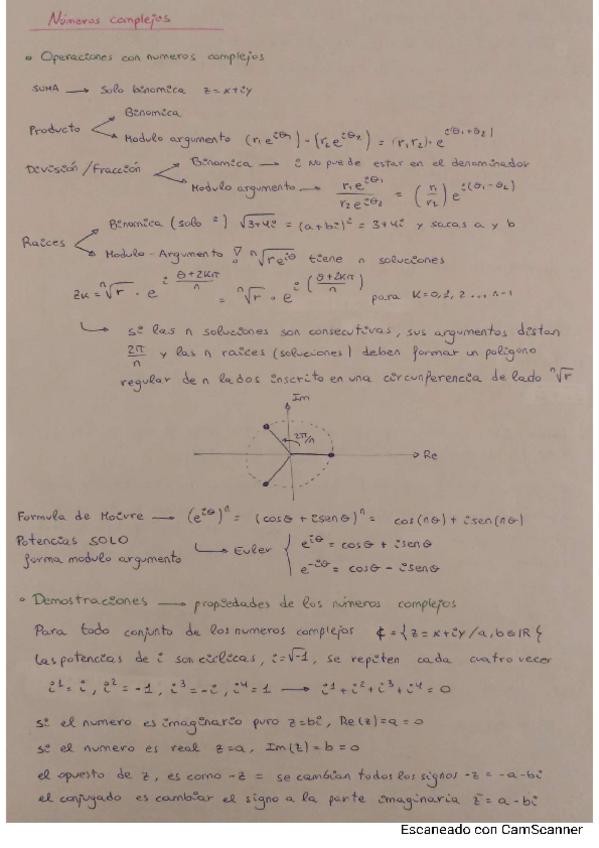 Números complejos
• Operaciones con numeros complejos
SUMA → Solo binomica z = x+iy
Producto
Binomica
Modulo argumento (r₁e^{iθ₁}) - (r₂e^{iθ₂}) = (r₁r₂)· e^{i(θ₁+θ₂)}
División /Fracción
Binomica → i No puede estar en el denominador
Modulo argumento → r₁e^{iθ₁} / r₂e^{iθ₂} = (r₁/r₂) e^{i(θ₁-θ₂)}
Raices
Binomica (solo ²) √3+4i = (a+bi)² = 3+4i y sacas a y b
Modulo - Argumento ∇ ⁿ√re^{iθ} tiene n soluciones
zk = ⁿ√r · e^{i (θ+2kπ)/n} = ⁿ√r · e^{i((θ+2kπ)/n)} para k=0,1,2 ... n-1
↳ si las n soluciones son consecutivas, sus argumentos distan
2π/n y las n raices (soluciones) deben formar un poligono
regular de n lados inscrito en una circunferencia de lado ⁿ√r
Im
2π/n
Re
Formula de Moivre → (e^{iθ})ⁿ = (cosθ + isenθ)ⁿ = cos(nθ) + isen(nθ)
Potencias SOLO
forma modulo argumento
↳ Euler { e^{iθ} = cosθ + isenθ
e^{-iθ} = cosθ - isenθ
• Demostraciones → propiedades de los números complejos
Para todo conjunto de los numeros complejos ₵ = {z = x+iy /a,b∈ℝ{
Las potencias de i son ciclicas, i=√-1, se repiten cada cuatro vecer
i¹ = i, i² = -1, i³ = -i, i⁴ = 1 → i¹+i²+i³+i⁴ = 0
si el numero es imaginario puro z=bi, Re(z)=a=0
si el numero es real z=a, Im(z)=b=0
el opuesto de z, es como -z = se cambian todos los signos -z = -a-bi
el conjugado es cambiar el signo a la parte imaginaria z̄ = a-bi
Escaneado con CamScanner